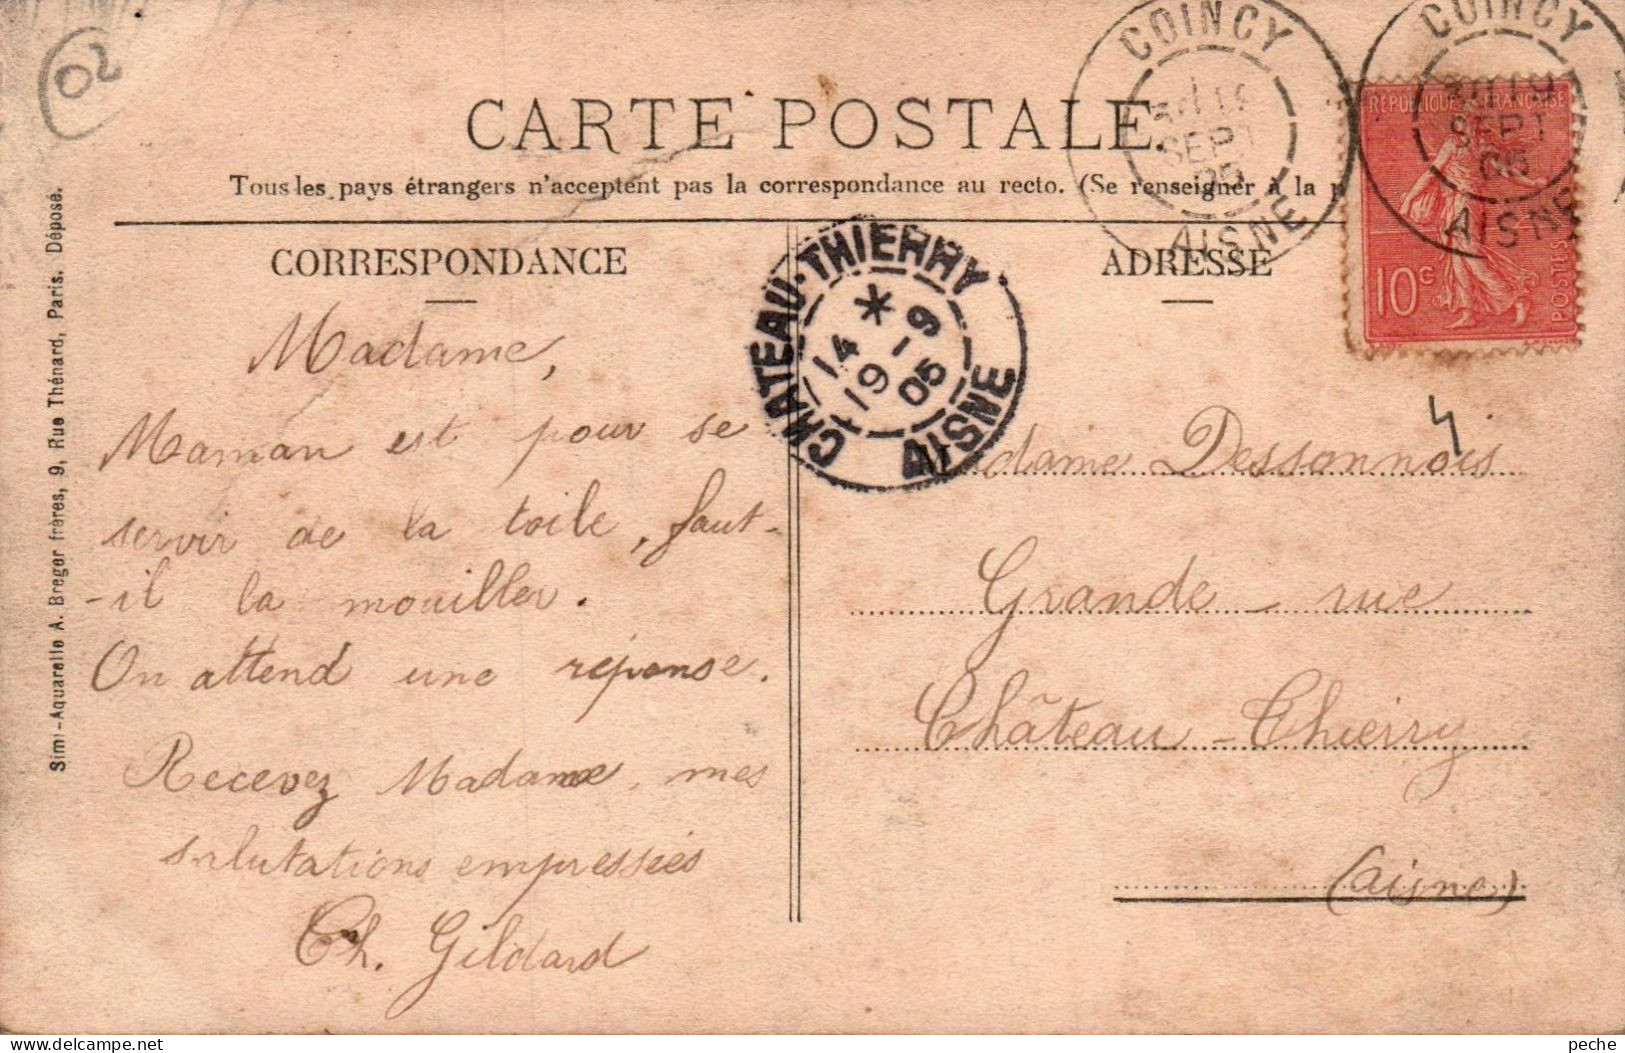 02
CARTE POSTALE
Tous les pays étrangers n'acceptent pas la correspondance au recto. (Se renseigner à la p
CORRESPONDANCE
Madame,
Maman est pour se
servir de la toile, faut-
-il la mouiller.
On attend une réponse.
Recevez Madame, mes
salutations empressées
Ch. Gildard
ADRESSE
Madame Dessonnois
Grande rue
Château-Thierry
(Aisne)
COINCY
SEPT
05
AISNE
COINCY
SEPT
05
AISNE
RÉPUBLIQUE FRANÇAISE
10c
POSTES
CHATEAU-THIERRY
14 *
19 - 9
05
AISNE
4
Simi-Aquarelle A. Breger frères, 9, Rue Thénard, Paris. Déposé.
delcampe.net
peche